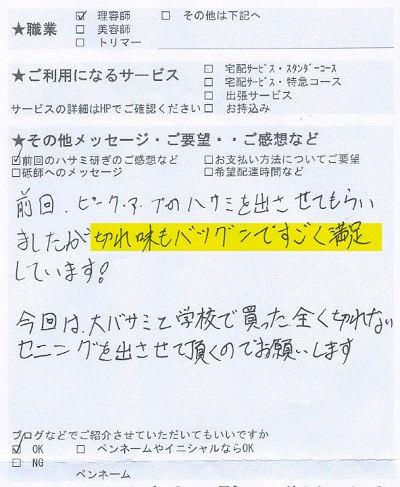 ☑ 理容師 □ その他は下記へ
★職業 □ 美容師
□ トリマー
★ご利用になるサービス □ 宅配ｻｰﾋﾞｽ・ｽﾀﾝﾀﾞｰｺｰｽ
□ 宅配ｻｰﾋﾞｽ・特急コース
□ 出張サービス
サービスの詳細はHPでご確認ください □ お持込み
★その他メッセージ・ご要望・・ご感想など
☑前回のハサミ研ぎのご感想など □お支払い方法についてご要望
□砥師へのメッセージ □希望配達時間など
前回、ピーク・ア・ブのハサミを出させてもらい
ましたが切れ味もバツグンですごく満足
しています!
今回は、大バサミと学校で買った全く切れない
セニングを出させて頂くのでお願いします
ブログなどでご紹介させていただいてもいいですか
☑ OK □ ペンネームやイニシャルならOK
□ NG
ペンネーム